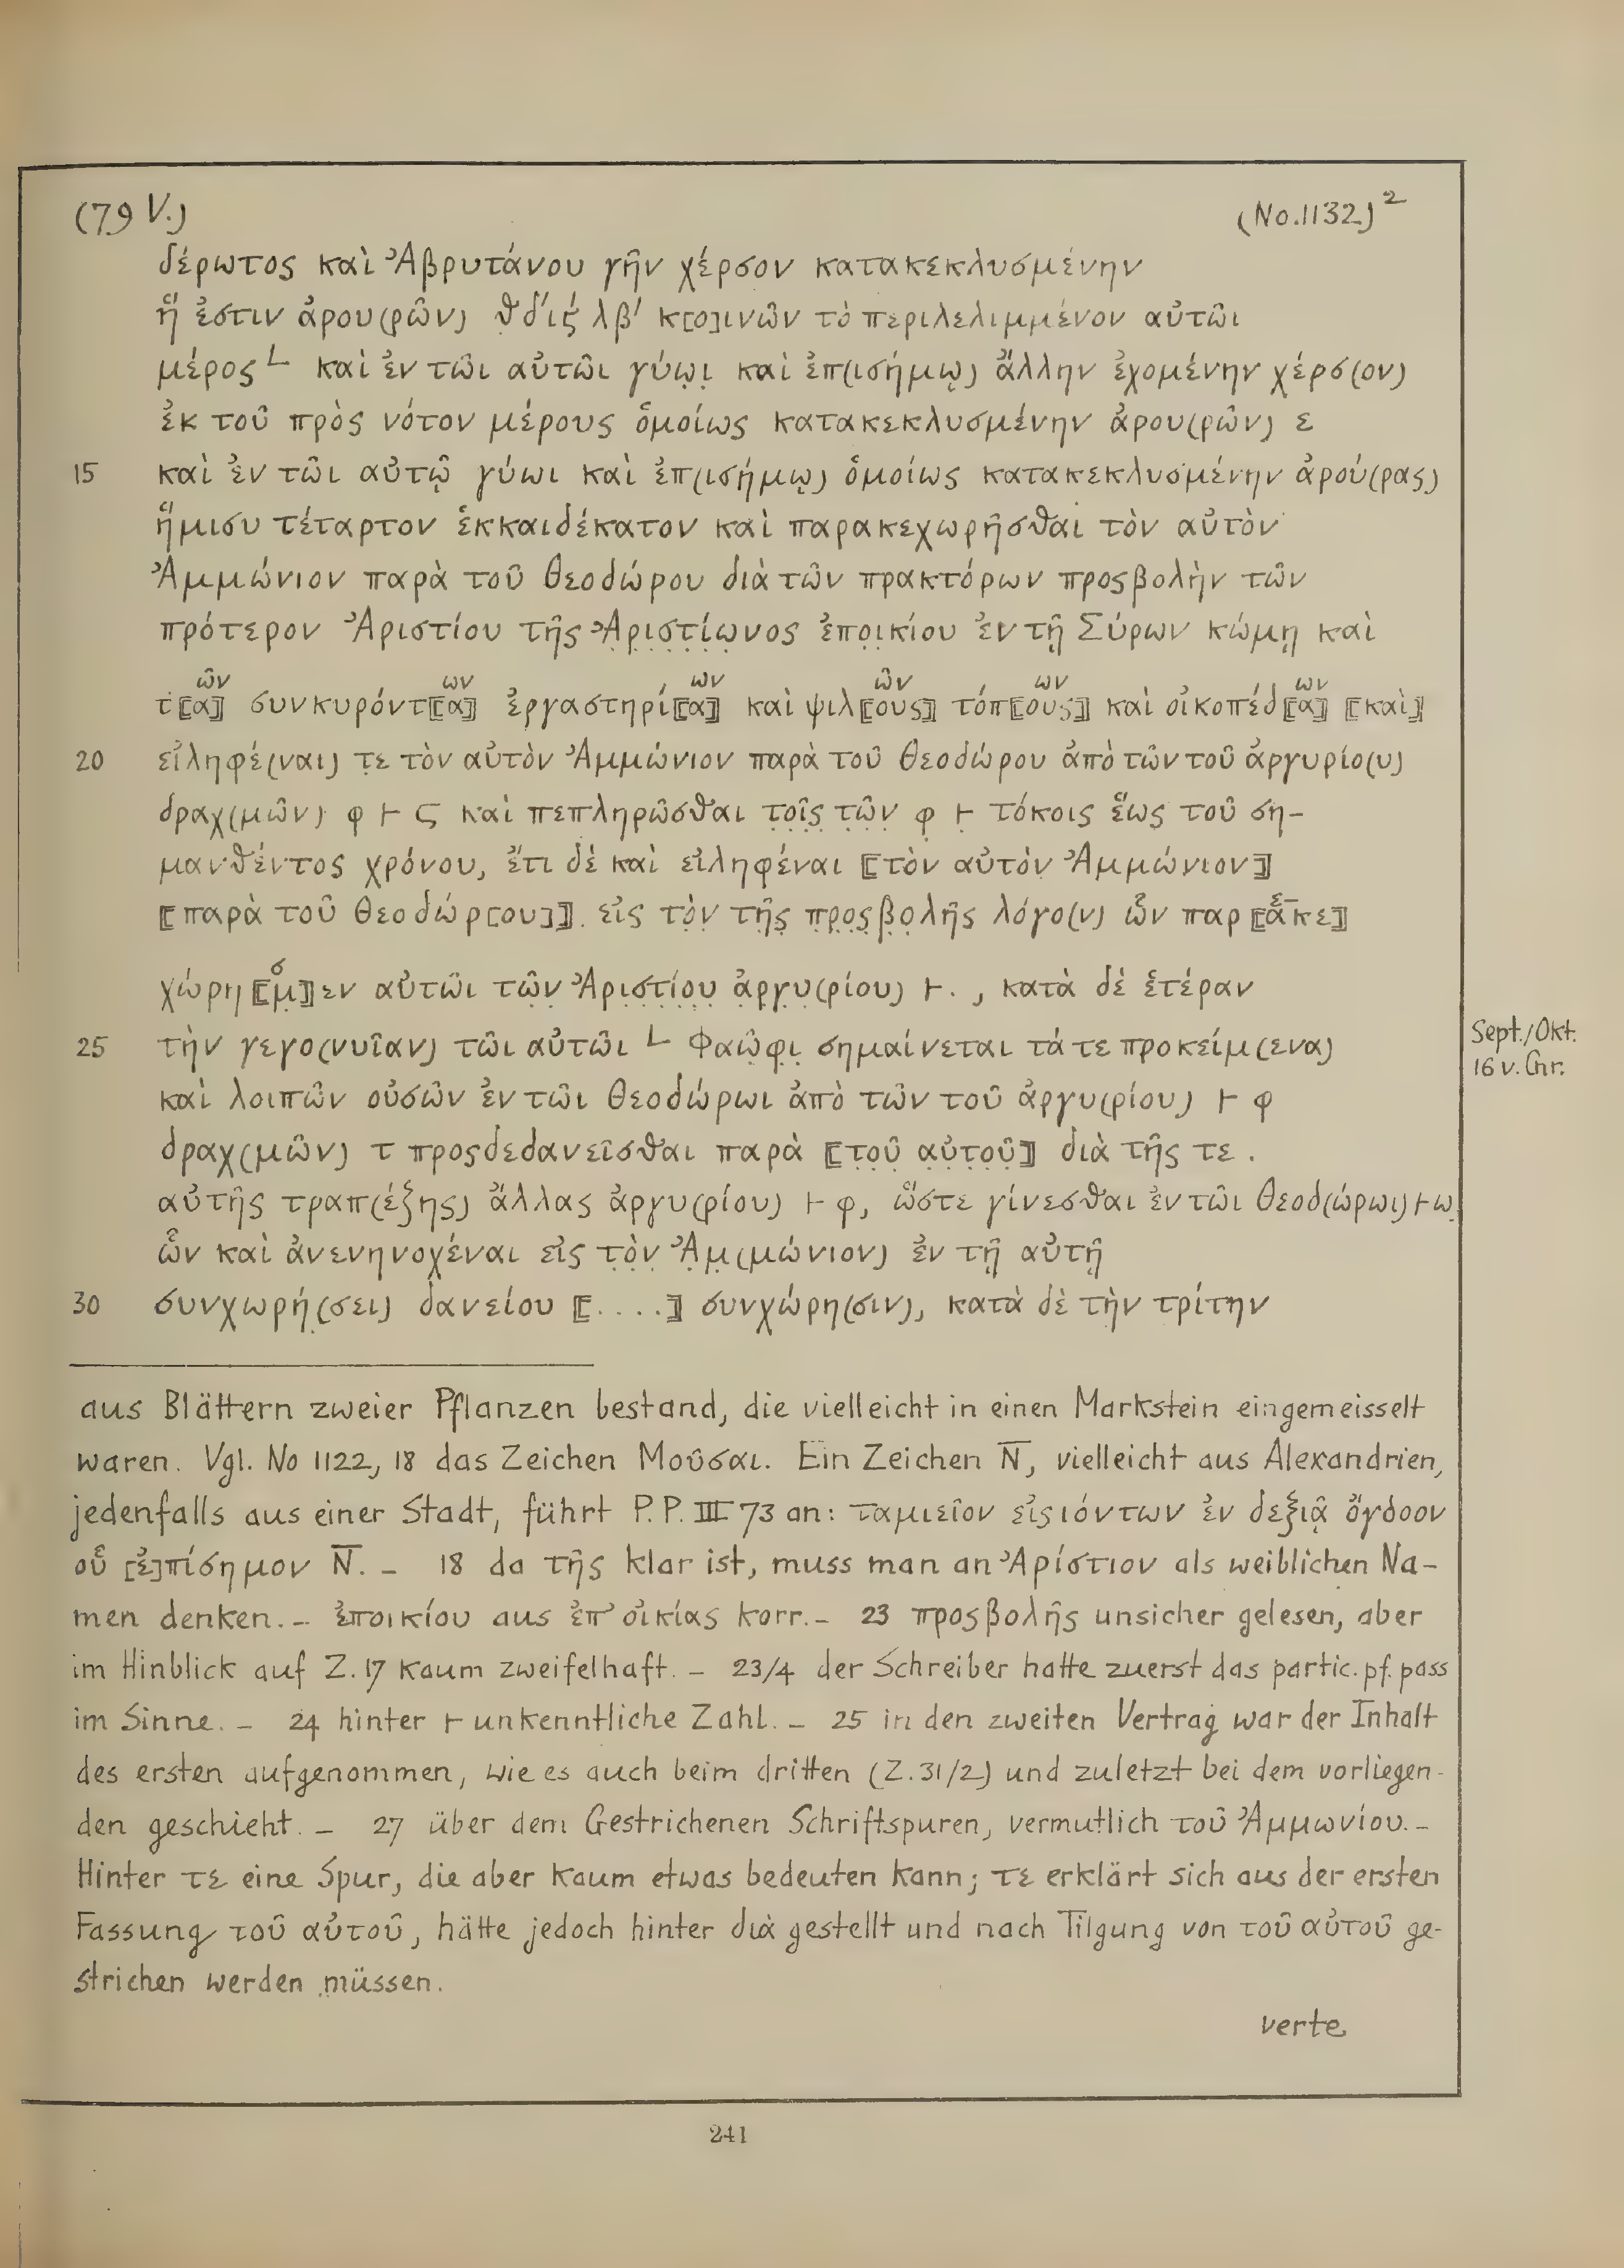 (79 V.) (No. 1132)²
δέρωτος καὶ Ἀβρυτάνου γῆν χέρσον κατακεκλυσμένην
ἥ ἐστιν ἀρου(ρῶν) θ δ´ ιϛ´ λβ´ κ[ο]ινῶν τὸ περιλελιμμένον αὐτῶι
μέρος └ καὶ ἐν τῶι αὐτῶι γύω̣ι̣ καὶ ἐπ(ισήμῳ) ἄλλην ἐχομένην χέρσ(ον)
ἐκ τοῦ πρὸς νότον μέρους ὁμοίως κατακεκλυσμένην ἀρου(ρῶν) ε
15 καὶ ἐν τῶι αὐτῷ γύωι καὶ ἐπ(ισήμῳ) ὁμοίως κατακεκλυσμένην ἀρού(ρας)
ἥμισυ τέταρτον ἑκκαιδέκατον καὶ παρακεχωρῆσθαι τὸν αὐτὸν
Ἀμμώνιον παρὰ τοῦ Θεοδώρου διὰ τῶν πρακτόρων προσβολὴν τῶν
πρότερον Ἀριστίου τῆς Ἀ̣ρ̣ι̣σ̣τ̣ί̣ω̣νος ἐπο̣ι̣κίου ἐν τῇ Σύρων κώμῃ καὶ
τ⟦α⟧`ῶν´ συνκυρόντ⟦α⟧`ων´ ἐργαστηρί⟦α⟧`ων´ καὶ ψιλ⟦ους⟧`ῶν´ τόπ⟦ους⟧`ων´ καὶ οἰκοπέδ⟦α⟧`ων´ ⟦καὶ⟧
20 εἰληφέ(ναι) τ̣ε τὸν αὐτὸν Ἀμμώνιον παρὰ τοῦ Θεοδώρου ἀπὸ τῶν τοῦ ἀργυρίο(υ)
δραχ(μῶν) φ ⊢ ϛ καὶ πεπληρῶσθαι τ̣ο̣ῖ̣ς̣ τ̣ῶ̣ν̣ φ̣ ⊢̣ τόκοις ἕως τοῦ ση-
μανθέντος χρόνου, ἔτι δὲ καὶ εἰληφέναι ⟦τὸν αὐτὸν Ἀμμώνιον⟧
⟦παρὰ τοῦ Θεοδώρ[ου]⟧. εἰς τ̣ὸ̣ν̣ τ̣ῆ̣ς̣ π̣ρ̣ο̣ς̣β̣ο̣λῆς λόγο(ν) ὧν παρ⟦ακε⟧`ε´
χώρη⟦μ̣⟧`σ´εν αὐτῶι τῶ̣ν̣ Ἀ̣ρ̣ι̣σ̣τ̣ί̣ο̣υ̣ ἀ̣ρ̣γ̣υ̣(ρίου) ⊢ . , κατὰ δὲ ἑτέραν
25 τὴν γεγο(νυῖαν) τῶι αὐτῶι └ Φαῶ̣φ̣ι̣ σημαίνεται τά τε προκείμ(ενα)
καὶ λοιπῶν οὐσῶν ἐν τῶι Θεοδώρωι ἀπὸ τῶν τοῦ ἀργυ(ρίου) ⊢ φ
δραχ(μῶν) τ προσδεδανεῖσθαι παρὰ ⟦τ̣ο̣ῦ̣ α̣ὐ̣τ̣ο̣ῦ̣⟧ διὰ τῆς τε .
αὐτῆς τραπ(έζης) ἄλλας ἀργυ(ρίου) ⊢ φ, ὥστε γίνεσθαι ἐν τῶι Θεοδ(ώρωι) ⊢ ω
ὧν καὶ ἀνενηνοχέναι εἰς τ̣ὸ̣ν̣ Ἀ̣μ̣(μώνιον) ἐν τῇ αὐτῇ
30 συνχωρή(σει) δανείου ⟦. . . .⟧ συνχώρη(σιν), κατὰ δὲ τὴν τρίτην
Sept./Okt.
16 v. Chr.
aus Blättern zweier Pflanzen bestand, die vielleicht in einen Markstein eingemeisselt
waren. Vgl. No 1122, 18 das Zeichen Μοῦσαι. Ein Zeichen N̅, vielleicht aus Alexandrien,
jedenfalls aus einer Stadt, führt P. P. III 73 an: ταμιεῖον εἰσιόντων ἐν δεξιᾷ ὄγδοον
οὗ [ἐ]πίσημον N̅. – 18 da τῆς klar ist, muss man an Ἀρίστιον als weiblichen Na-
men denken. – ἐποικίου aus ἐπ' οἰκίας korr. – 23 προσβολῆς unsicher gelesen, aber
im Hinblick auf Z. 17 kaum zweifelhaft. – 23/4 der Schreiber hatte zuerst das partic. pf. pass
im Sinne. – 24 hinter ⊢ unkenntliche Zahl. – 25 in den zweiten Vertrag war der Inhalt
des ersten aufgenommen, wie es auch beim dritten (Z. 31/2) und zuletzt bei dem vorliegen-
den geschieht. – 27 über dem Gestrichenen Schriftspuren, vermutlich τοῦ Ἀμμωνίου. –
Hinter τε eine Spur, die aber kaum etwas bedeuten kann; τε erklärt sich aus der ersten
Fassung τοῦ αὐτοῦ, hätte jedoch hinter διὰ gestellt und nach Tilgung von τοῦ αὐτοῦ ge-
strichen werden müssen.
verte
241